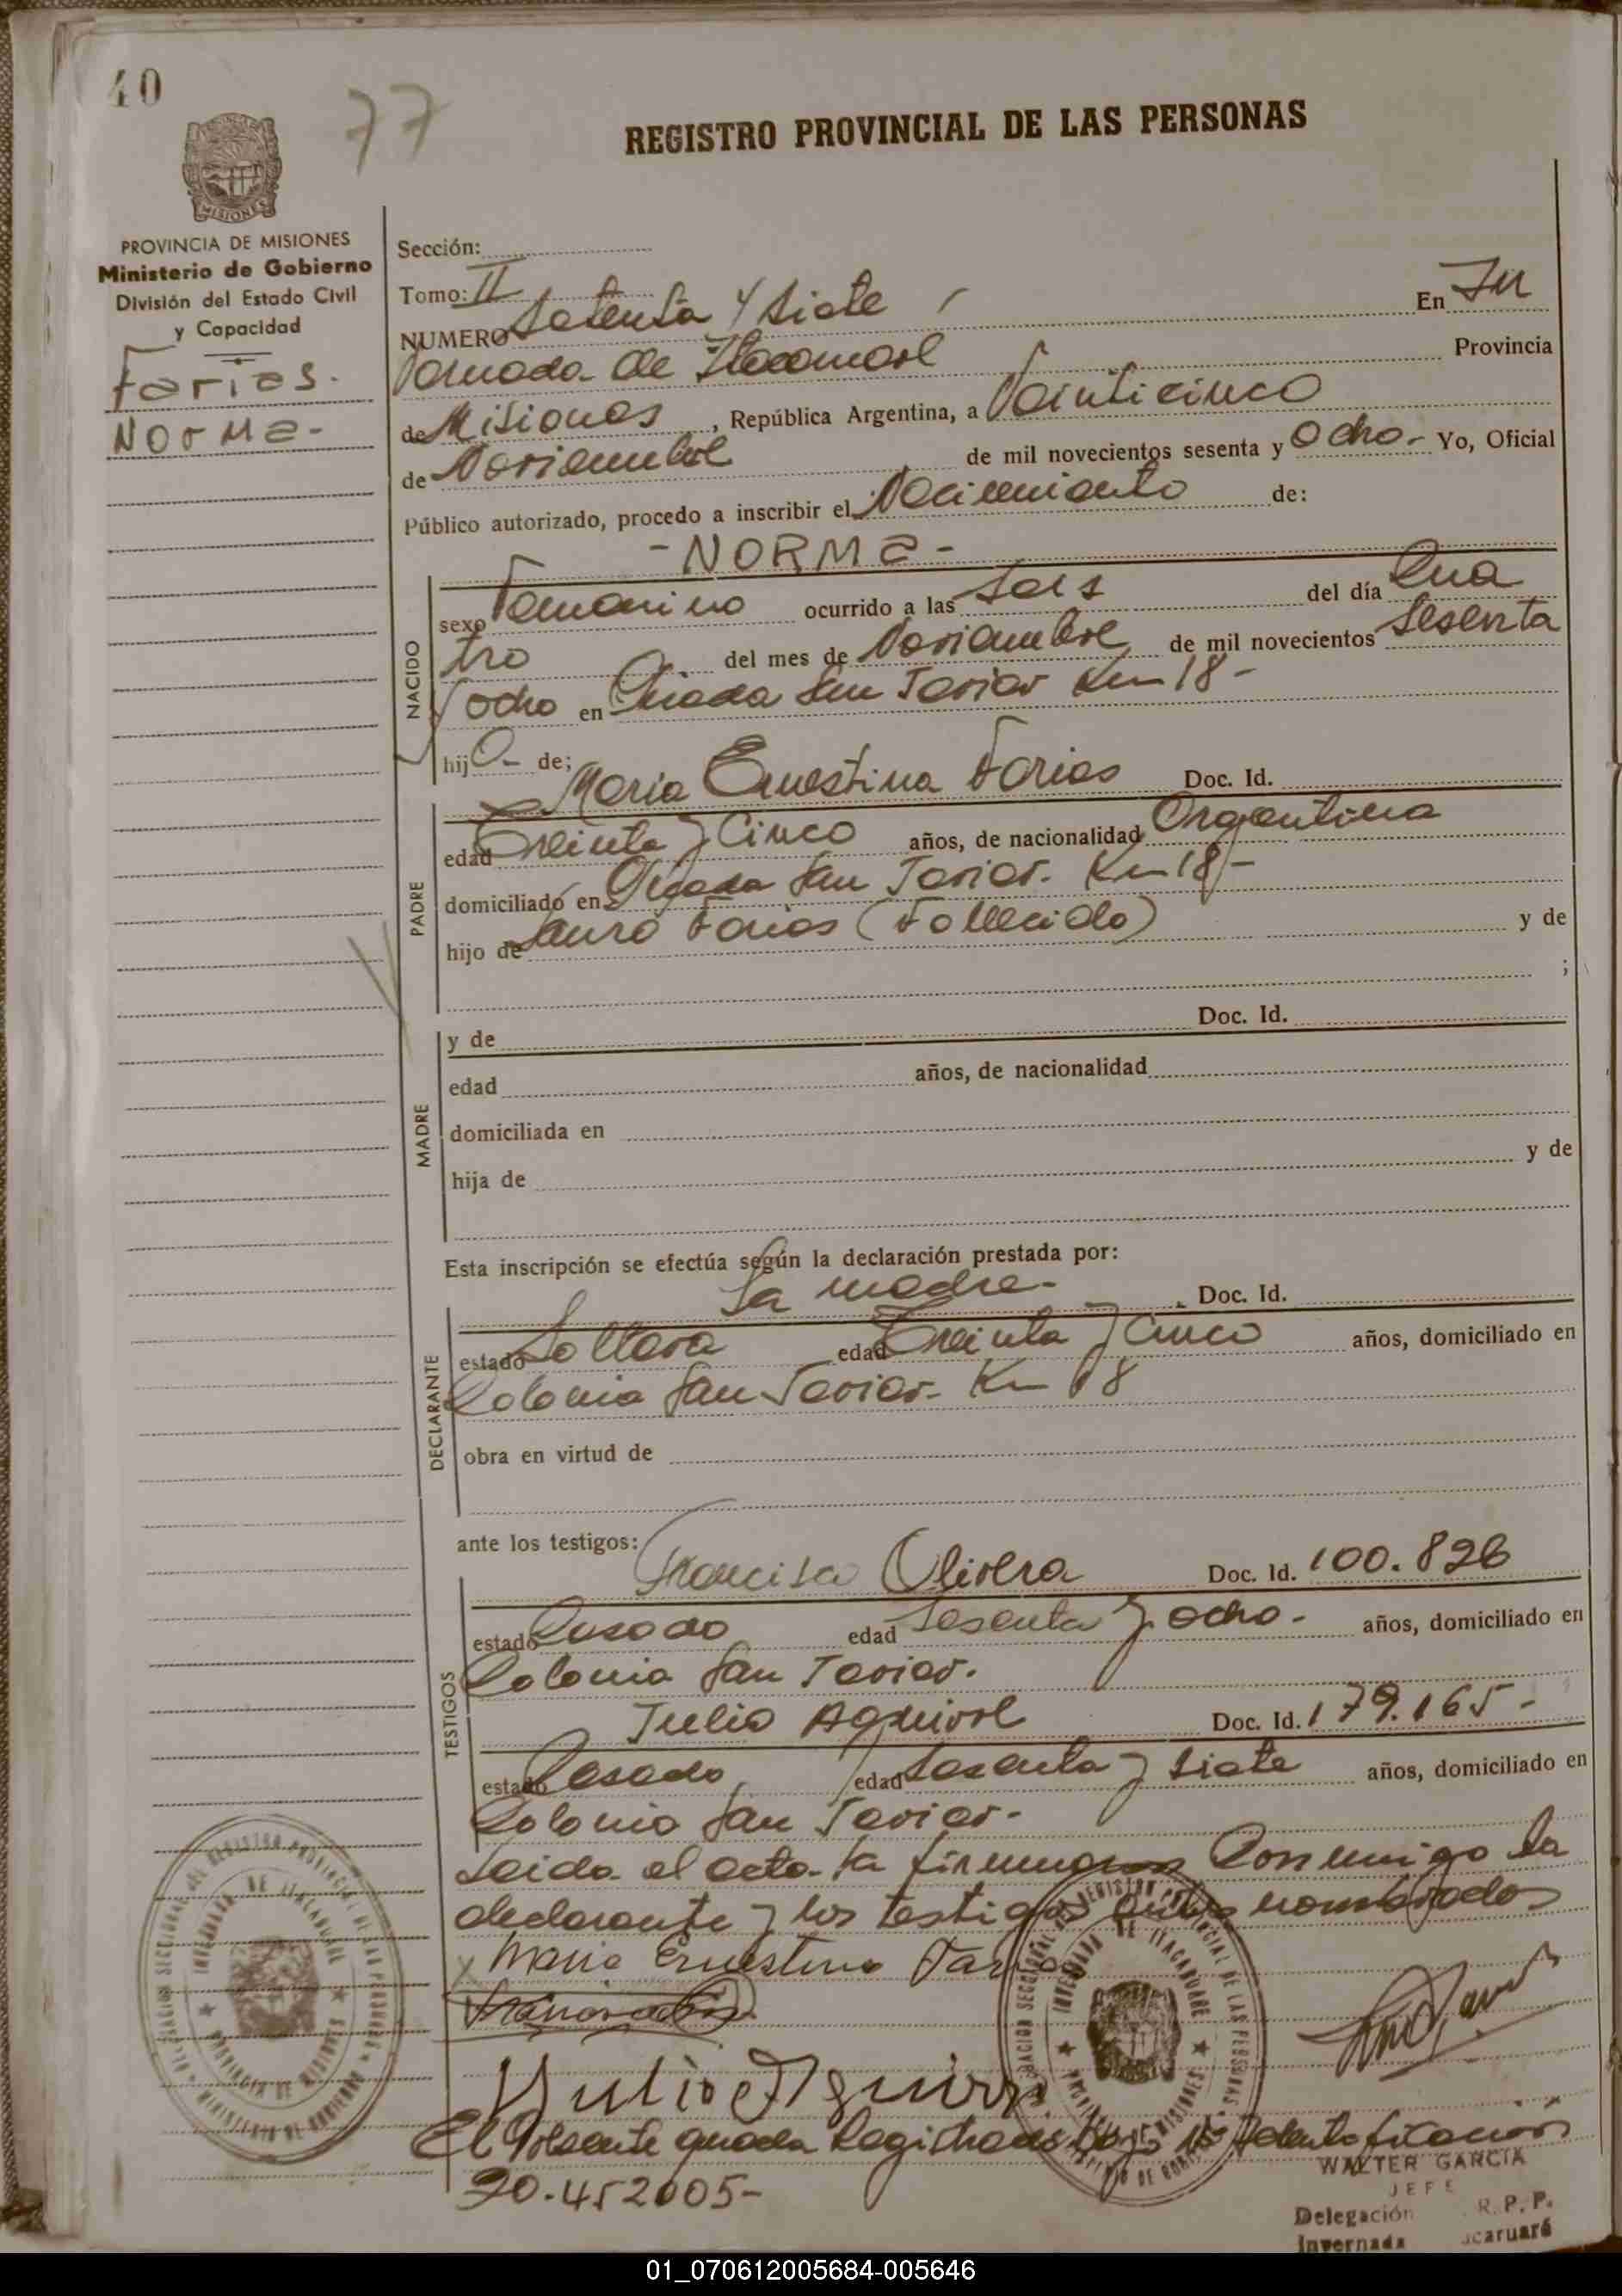 40
77
REGISTRO PROVINCIAL DE LAS PERSONAS
MISIONES
PROVINCIA DE MISIONES
Ministerio de Gobierno
División del Estado Civil
y Capacidad
Farias.
Norma-
Sección:
Tomo: II
NUMERO Setenta y Siete En In
vernada de Itacaruaré Provincia
de Misiones, República Argentina, a Veinticinco
de Noviembre de mil novecientos sesenta y Ocho.- Yo, Oficial
Público autorizado, procedo a inscribir el Nacimiento de:
- NORMA -
NACIDO
sexo Femenino ocurrido a las Seis del día Cua
tro del mes de Noviembre de mil novecientos Sesenta
y ocho en Picada San Javier Km 18-
hij a- de;
Maria Ernestina Farias Doc. Id.
PADRE
edad Treinta y Cinco años, de nacionalidad Argentina
domiciliado en Picada San Javier. Km 18-
hijo de Lauro Farias (Fallecido) y de
;
MADRE
y de Doc. Id.
edad años, de nacionalidad
domiciliada en
hija de y de
Esta inscripción se efectúa según la declaración prestada por:
La madre- Doc. Id.
DECLARANTE
estado Soltera edad Treinta y Cinco años, domiciliado en
Colonia San Javier- Km 18
obra en virtud de
ante los testigos:
Francisco Olivera Doc. Id. 100.826
TESTIGOS
estado Casado edad Sesenta y ocho- años, domiciliado en
Colonia San Javier.
Julio Aguirre Doc. Id. 179.165-
estado Casado edad Sesenta y Siete años, domiciliado en
Colonia San Javier-
Leida el acta la firman Conmigo la
declarante y los testigos antes nombrados
Maria Ernestina Farias
Julio Aguirre
El Presente queda Registrado bajo Identificación
20.452005-
WALTER GARCIA
JEFE
Delegación R. P. P.
Invernada Itacaruaré
01_070612005684-005646